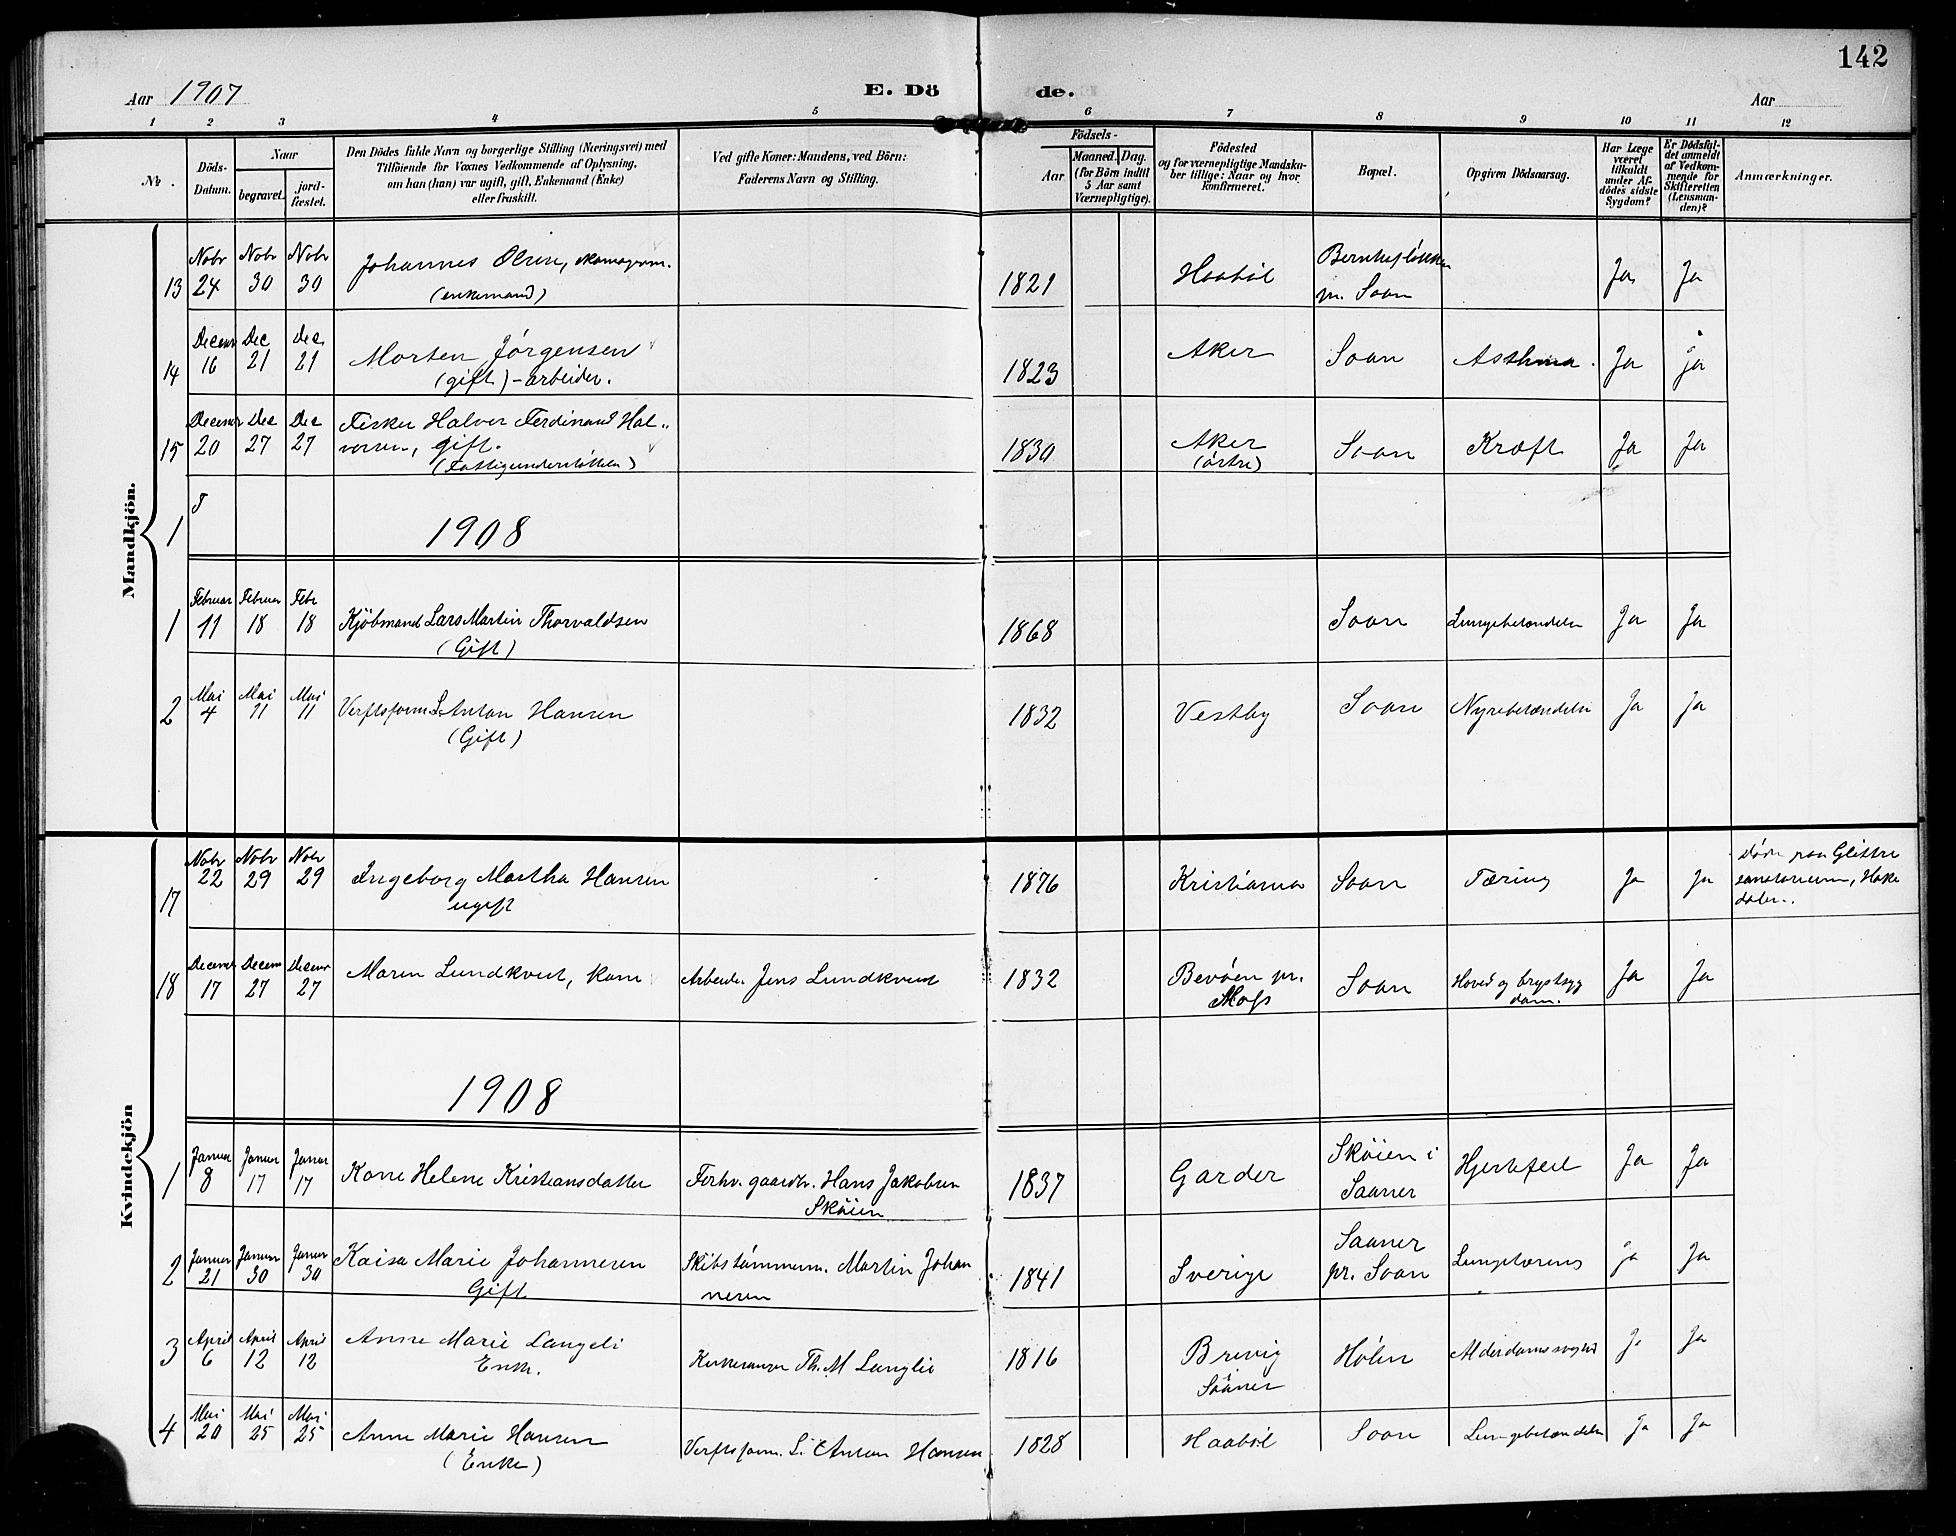 142
Aar 1907 E. Dö de. Aar
1 2 3 4 5 6 7 8 9 10 11 12
No. Döds-Datum. Naar begravet. jordfæstet. Den Dödes fulde Navn og borgerlige Stilling (Næringsvei) med Tilföiende for Voxnes Vedkommende af Oplysning, om han (hun) var ugift, gift, Enkemand (Enke) eller fraskilt. Ved gifte Koner: Mandens, ved Börn: Faderens Navn og Stilling. Födsels- Aar Maaned. Dag. (for Börn indtil 5 Aar samt Værnepligtige). Födested og for værnepligtige Mandskaber tillige: Naar og hvor konfirmeret. Bopæl. Opgiven Dödsaarsag. Har Læge været tilkaldt under Afdödes sidste Sygdom? Er Dödsfaldet anmeldt af Vedkommende for Skifteretten (Lensmanden)? Anmærkninger.
Mandkjön.
13 Nobr 24 Nobr 30 Nobr 30 Johannes Olsen, skomagerm. (enkemand) 1821 Haabøl pr. Soon Ja Ja
14 Decemr 16 Dec 21 Dec. 21 Morten Jörgensen (gift) - arbeider. 1823 Aker Soon Asthma. Ja Ja
15 Decemr 20 Dec 27 Dec 27 Fisker Halvor Ferdinand Halvorsen, gift. (Fattigunderstøttet) 1830 Aker (østre) Soon Kræft Ja Ja
1 8
1908
1 Februar 11 Februar 18 Febr 18 Kjöbmand Lars Martin Thorvaldsen (Gift) 1868 Soon Lungebetændelse Ja Ja
2 Mai 4 Mai 11 Mai 11 Verftsform. L. Anton Hansen (Gift) 1832 Vestby Soon Nyrebetændelse Ja Ja
Kvindekjön
17 Nobr 22 Nobr 29 Nobr 29 Ingeborg Martha Hansen ugift 1876 Kristiania Soon Tæring Ja Ja Død paa Glittre sanatorium, Hakedalen.
18 Decemr 17 Decem 27 Decemr 27 Maren Lundkvist, kone Arbeider Jens Lundkvist 1832 Bevøen pr. Moss Soon Hoved og brystsygdom. Ja Ja
1908
1 Januar 8 Januar 17 Januar 17 Kone Helene Kristiansdatter Forhv. gaardbr. Hans Jakobsen Skøien 1837 Garder Skøien i Saaner Hjertefeil Ja Ja
2 Januar 21 Januar 30 Januar 30 Kaisa Marie Johannesen Gift Skibstømmerm. Martin Johannesen 1841 Sverige Saaner pr. Soon Lungetæring Ja Ja
3 April 6 April 12 April 12 Anne Marie Langeli Enke. Kirkesanger Th. M Langlie 1816 Brevig i Saaner Hølen Alderdomssvaghed Ja Ja
4 Mai 20 Mai 25 Mai 25 Anne Marie Hansen (Enke) Verftsform. L. Anton Hansen 1828 Haabøl Soon Lungebetændelse Ja Ja